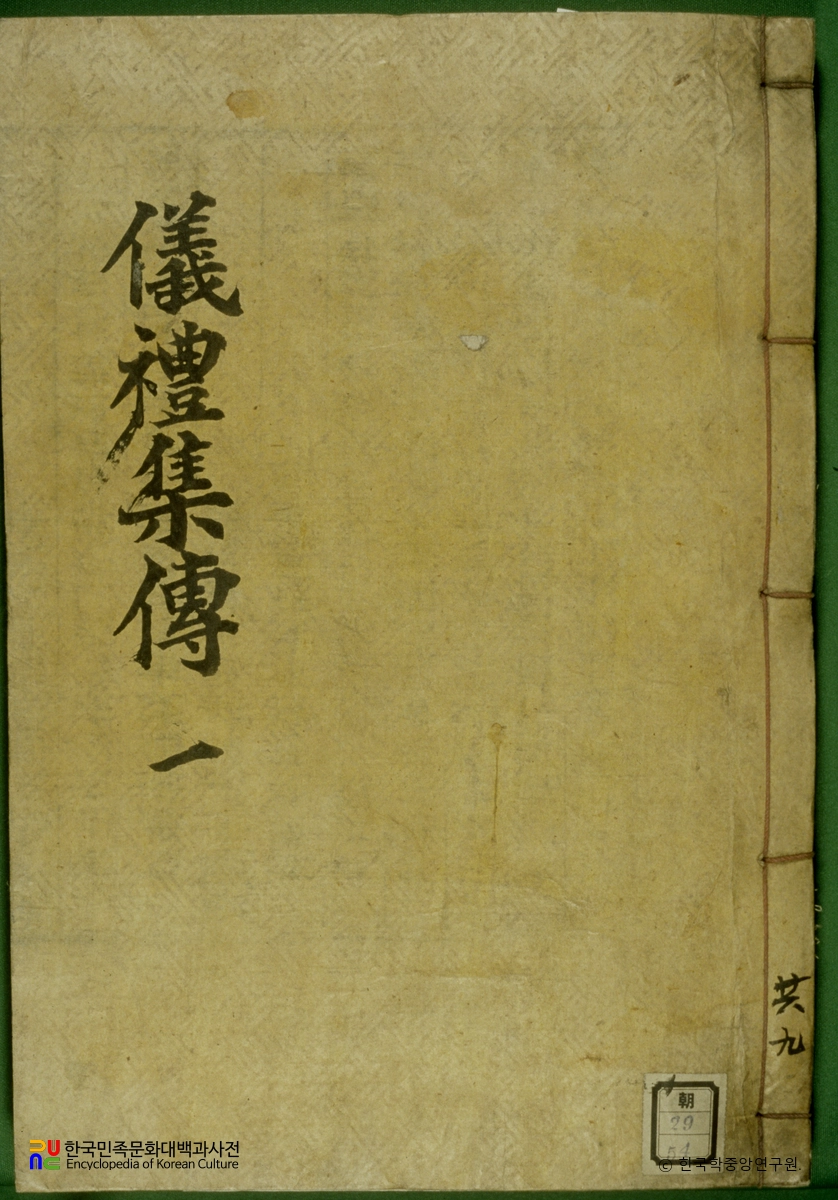 儀禮集傳 一
共九
朝
29
51
한국민족문화대백과사전
Encyclopedia of Korean Culture
© 한국학중앙연구원